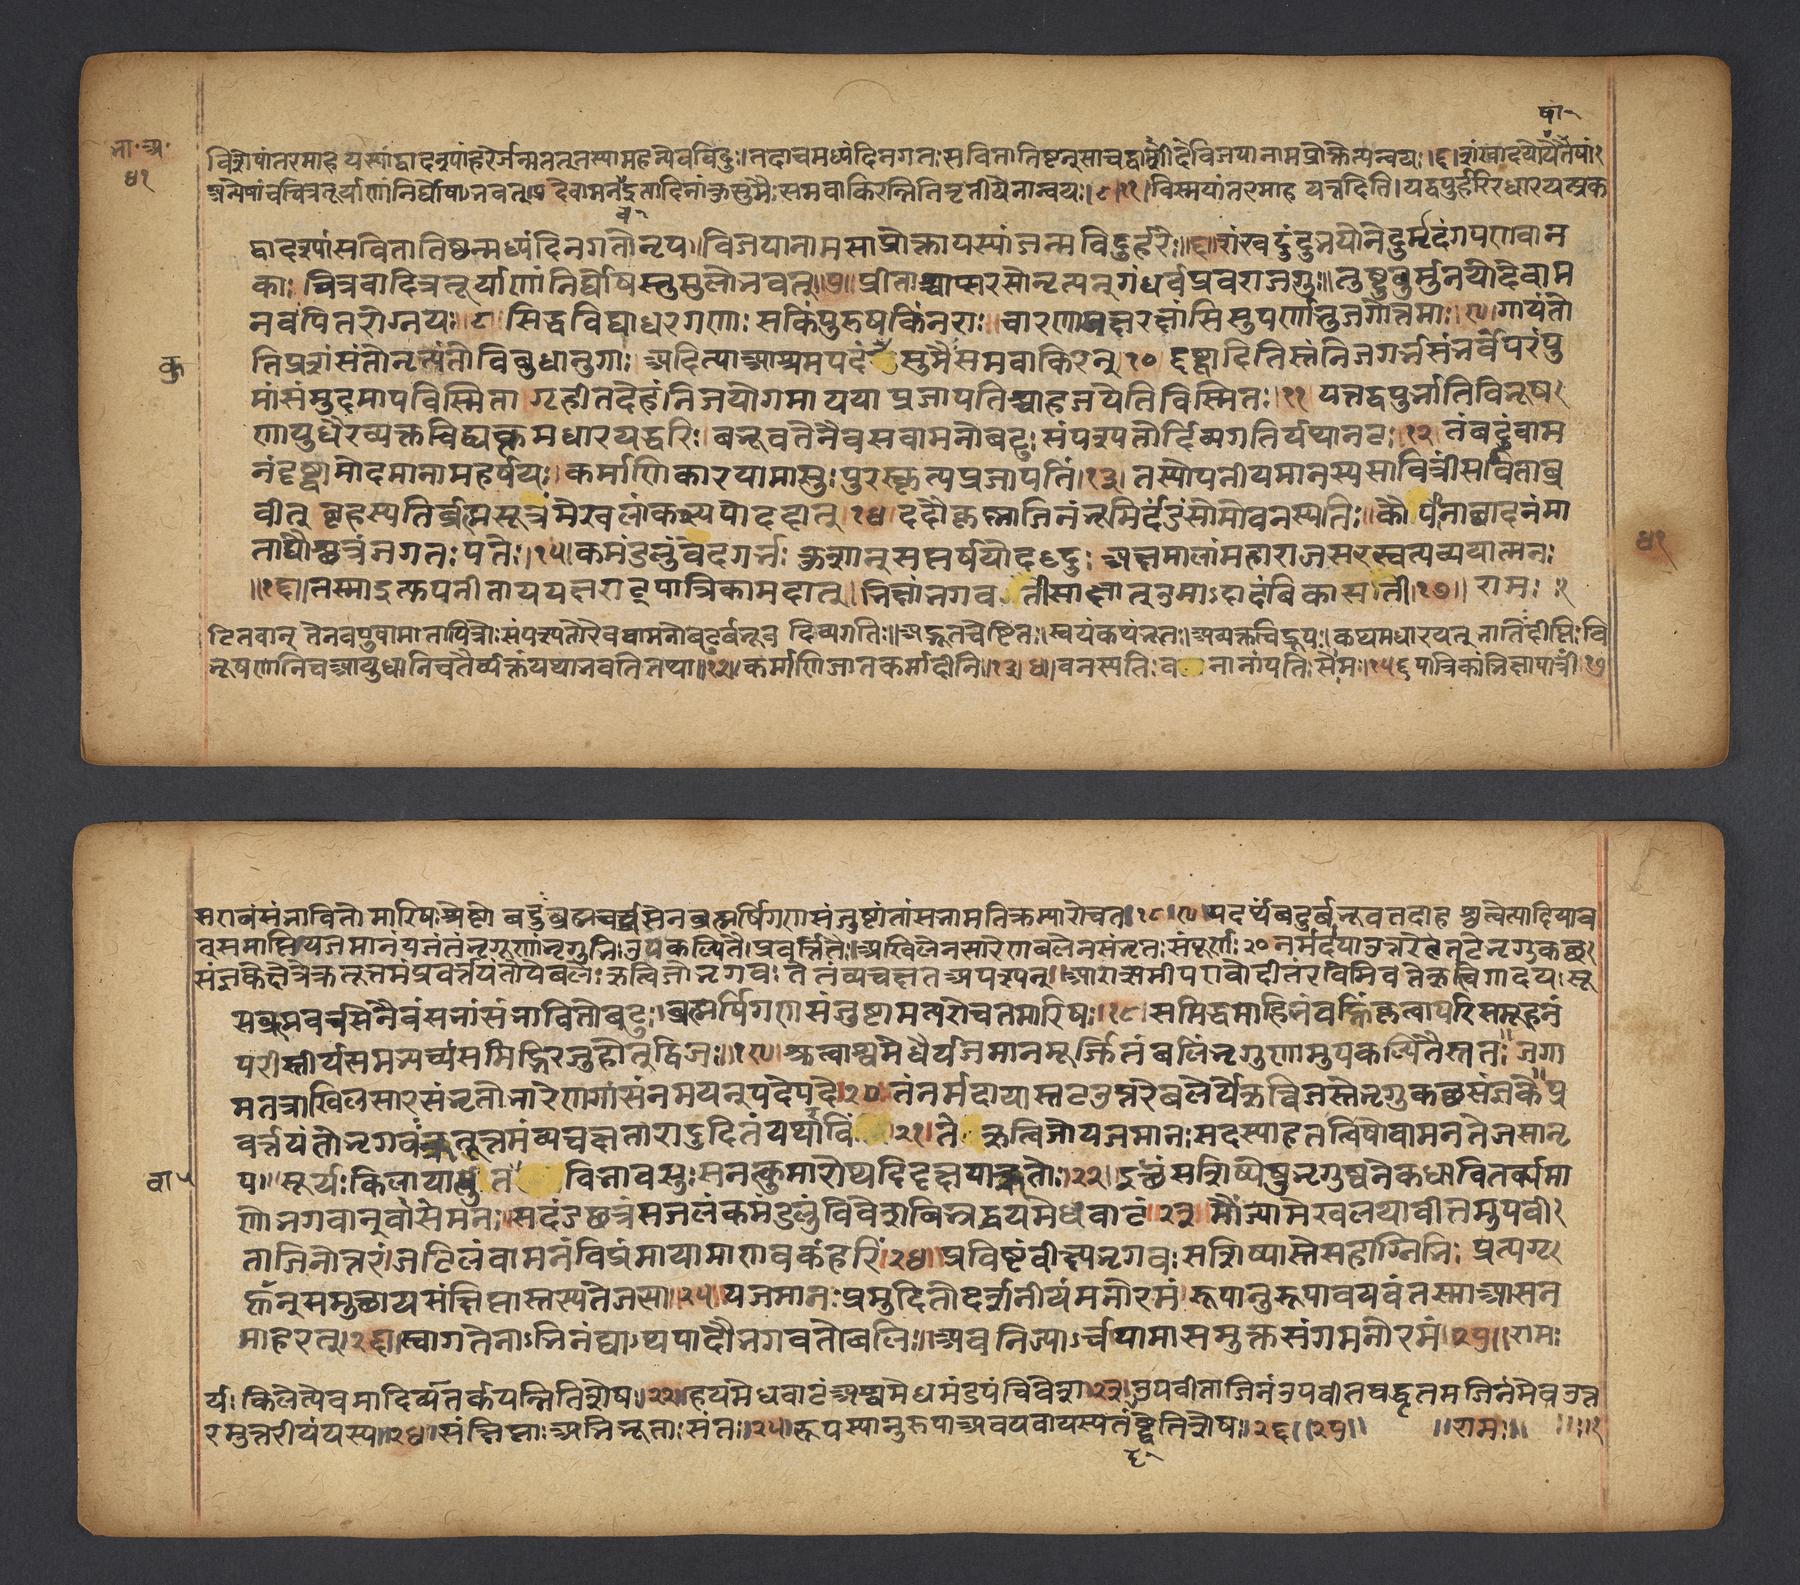 षा२
भा.अ.
४१
विशेषांतरमाह यस्यां द्वादश्यां हरेर्जन्म तत् तस्यामहन्येव विदुः। तदा च मध्यंदिनगतः सविताऽतिष्ठत् सा च द्वादशी विजया नाम प्रोक्तेत्यन्वयः।६। शंखादयो ये तेषां
अन्येषां च चित्रतूर्याणां निर्घोषोऽभवत्।७। देवा मनव इत्यादिनां कुसुमैः समवाकिरन्निति तृतीयेनान्वयः।८।९१। विस्मयांतरमाह यत्तदिति। यद्वपुर्हरिरधारयत्प्रक
व२
द्वादश्यां सविता तिष्ठन्मध्यंदिनगतो नृप॥ विजया नाम सा प्रोक्ता यस्यां जन्म विदुर्हरेः॥६॥ शंखदुंदुभयो नेदुर्मृदंगपणवान
काः चित्रवादित्रतूर्याणां निर्घोषस्तुमुलोभवत्॥७॥ प्रीताश्चाप्सरसोनृत्यन् गंधर्वप्रवरा जगुः॥ तुष्टुवुर्मुनयो देवा म
नवः पितरोग्नयः॥८॥ सिद्धविद्याधरगणाः सकिंपुरुषकिंनराः॥ चारणा यक्षरक्षांसि सुपर्णा भुजगोत्तमाः॥९॥ गायंतो
तिप्रशंसंतो नृत्यंतो विबुधानुगाः अदित्या आश्रमपदं सुमैः समवाकिरन् १० दृष्ट्वादितिस्तं निजगर्भसंभवं परं पु
कु
मांसं मुदमाप विस्मिता गृहीतदेहं निजयोगमायया प्रजापतिश्चाह जयेति विस्मितः।११ यत्तद्वपुर्भाति विभूष
णायुधैरव्यक्तचिद्व्यक्तमधारयद्धरिः बभूव तेनैव स वामनो बटुः संपश्यतोर्दिव्यगतिर्यथा नटः।१२ तं बटुं वाम
नं दृष्ट्वा मोदमाना महर्षयः कर्माणि कारयामासुः पुरस्कृत्य प्रजापतिं।१३। तस्योपनीयमानस्य सावित्रीं सविताब्र
वीत् बृहस्पतिर्ब्रह्मसूत्रं मेखलां कश्यपोददात् १४ ददौ कृष्णाजिनं भूमिर्दंडं सोमो वनस्पतिः॥ कौपीनाच्छादनं मा
ताद्यौश्छत्रं जगतः पतेः।१५। कमंडलुं वेदगर्भः कुशान् सप्तर्षयो ददुः अक्षमालां महाराज सरस्वत्यव्ययात्मनः
४१
॥१६॥ तस्मा इत्युपनीताय यक्षराट् पात्रिकामदात्। भिक्षां भगवती साक्षात् उमाऽदादंबिका सती।१७॥ राम॥१
टितवान् तेन वपुषा मातापित्रोः संपश्यतोरेव वामनो बटुर्बभूव दिव्यगतिः॥ अद्भुतचेष्टितः। स्वयं कथंभूतः। अव्यक्तचिद्रूपः। कथमधारयत् भातिर्दीप्तिः वि
भूषणानि च आयुधानि च तैर्व्यक्तं यथा भवति तथा॥१२॥ कर्माणि जातकर्मादीनि।१३।४। वनस्पतिः वनानां पतिः सोमः।१५६ पात्रिकां भिक्षापात्रीं १७
मेवं संभावितो मारिषः श्रेष्ठो बटुर्ब्रह्मवर्चसेन ब्रह्मर्षिगणसंजुष्टां तां सभामतिक्रम्यारोचत।१८।१९। यदर्थं बटुर्बभूव तदाह श्रुत्वेत्यादि याव
त्समाप्ति। यजमानं यजंतं भृगूणां भृगुभिः उपकल्पितैः प्रवर्तितैः। अखिलेन सारेण बलेन संभृतः संपूर्णः २० नर्मदाया उत्तरे तटे भृगुकच्छ
संज्ञके क्षेत्रे क्रतूत्तमं प्रवर्त्तयंतो ये बलेः ऋत्विजो भृगवः ते तं व्यचक्षत अपश्यन्। आरात्समीप एवोदितं रविमिव ते ऋत्विगादयः सू
स ब्रह्मवर्चसेनैवं सभां संभावितो बटुः। ब्रह्मर्षिगणसंजुष्टामत्यरोचत मारिषः।१८। समिद्धमाहितं वह्निं कृत्वा परिसमूहनं
परिस्तीर्य समभ्यर्च्य समिद्भिरजुहोत् द्विजः॥१९॥ श्रुत्वाश्वमेधैर्यजमानमूर्जितं बलिं भृगूणामुपकल्पितैस्ततः जगा
म तत्राखिलसारसंभृतो भारेण गां संनमयन् पदे पदे।२०। तं नर्मदायास्तट उत्तरे बलेर्य ऋत्विजस्ते भृगुकच्छसंज्ञके प्र
वर्त्तयंतो भृगवः क्रतूत्तमं व्यचक्षतारादुदितं यथा रविं २१। ते ऋत्विजो यजमानः सदस्या हतत्विषो वामनतेजसा नृ
वा५
प॥ सूर्यः किलायात्युत वा विभावसुः सनत्कुमारोथ दिदृक्षया क्रतोः।२२। इत्थं सशिष्येषु भृगुष्वनेकधा वितर्क्यमा
णो भगवान् वामनः॥ सदंडछत्रं सजलं कमंडलुं विवेश बिभ्रद्धयमेधवाटं २३ मौंज्या मेखलया वीतमुपवी
ताजिनोत्तरं। जटिलं वामनं विप्रं मायामाणवकं हरिं।२४। प्रविष्टं वीक्ष्य भृगवः सशिष्यास्ते सहाग्निभिः प्रत्यगृ
ह्णन् समुत्थाय संक्षिप्तास्तस्य तेजसा।२५। यजमानः प्रमुदितो दर्शनीयं मनोरमं रूपानुरूपावयवं तस्मा आसन
माहरत्।२६। स्वागतेनाऽभिनंद्याऽथ पादौ भगवतो बलिः॥ अवनिज्याऽर्च्चयामास मुक्तसंगमनोरमं।२७॥ राम॥
र्यः किलेत्येवमादिर्व्यतर्कयन्निति शेषः।२२। हयमेधवाटं अश्वमेधमंडपं विवेश।२३। उपवीताजिनं उपवीतवद्धृतमजिनमेव उत्त
रमुत्तरीयं यस्य।२४। संक्षिप्ताः अभिभूताः संतः।२५। रूपस्यानुरूपा अवयवा यस्य तं दृष्ट्वेति शेषः।२६।।२७॥ ॥राम॥ ॥१
दृ२